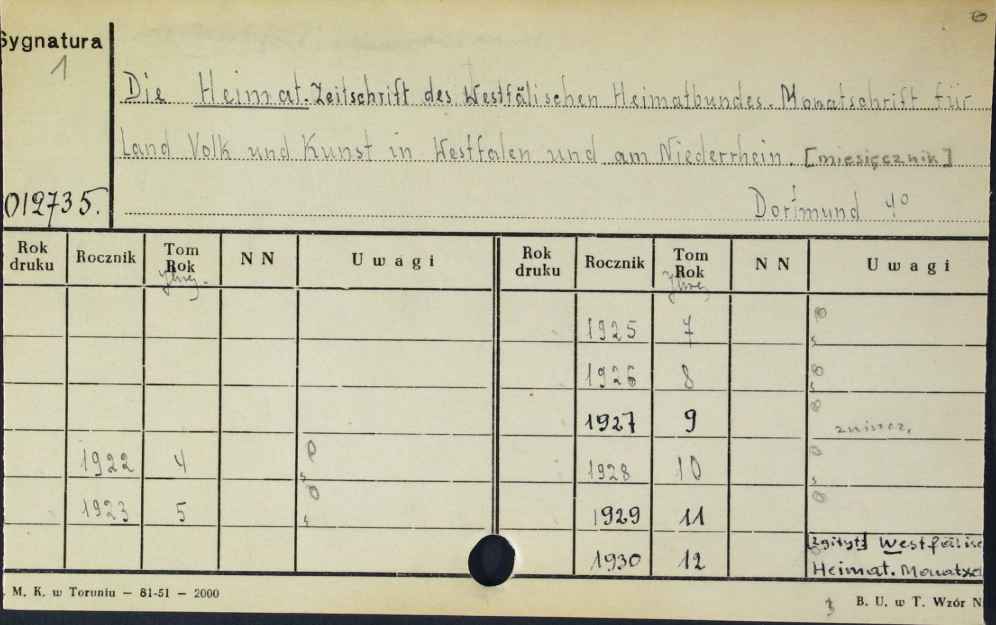 Sygnatura
1
Die Heimat. Zeitschrift des Westfälischen Heimatbundes. Monatschrift für
Land Volk und Kunst in Westfalen und am Niederrhein. [miesięcznik]
012735.
Dortmund 4°
Rok druku Rocznik Tom Rok NN Uwagi Rok druku Rocznik Tom Rok NN Uwagi
1925 7
1926 8
1927 9 zniszcz.
1922 4 1928 10
1923 5 1929 11
1930 12 Westfälisc
Heimat.
M. K. w Toruniu — 81-51 — 2000
B. U. w T. Wzór N